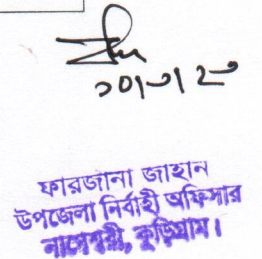 ফারজানা জাহান
উপজেলা নির্বাহী অফিসার
নাগেশ্বরী, কুড়িগ্রাম।